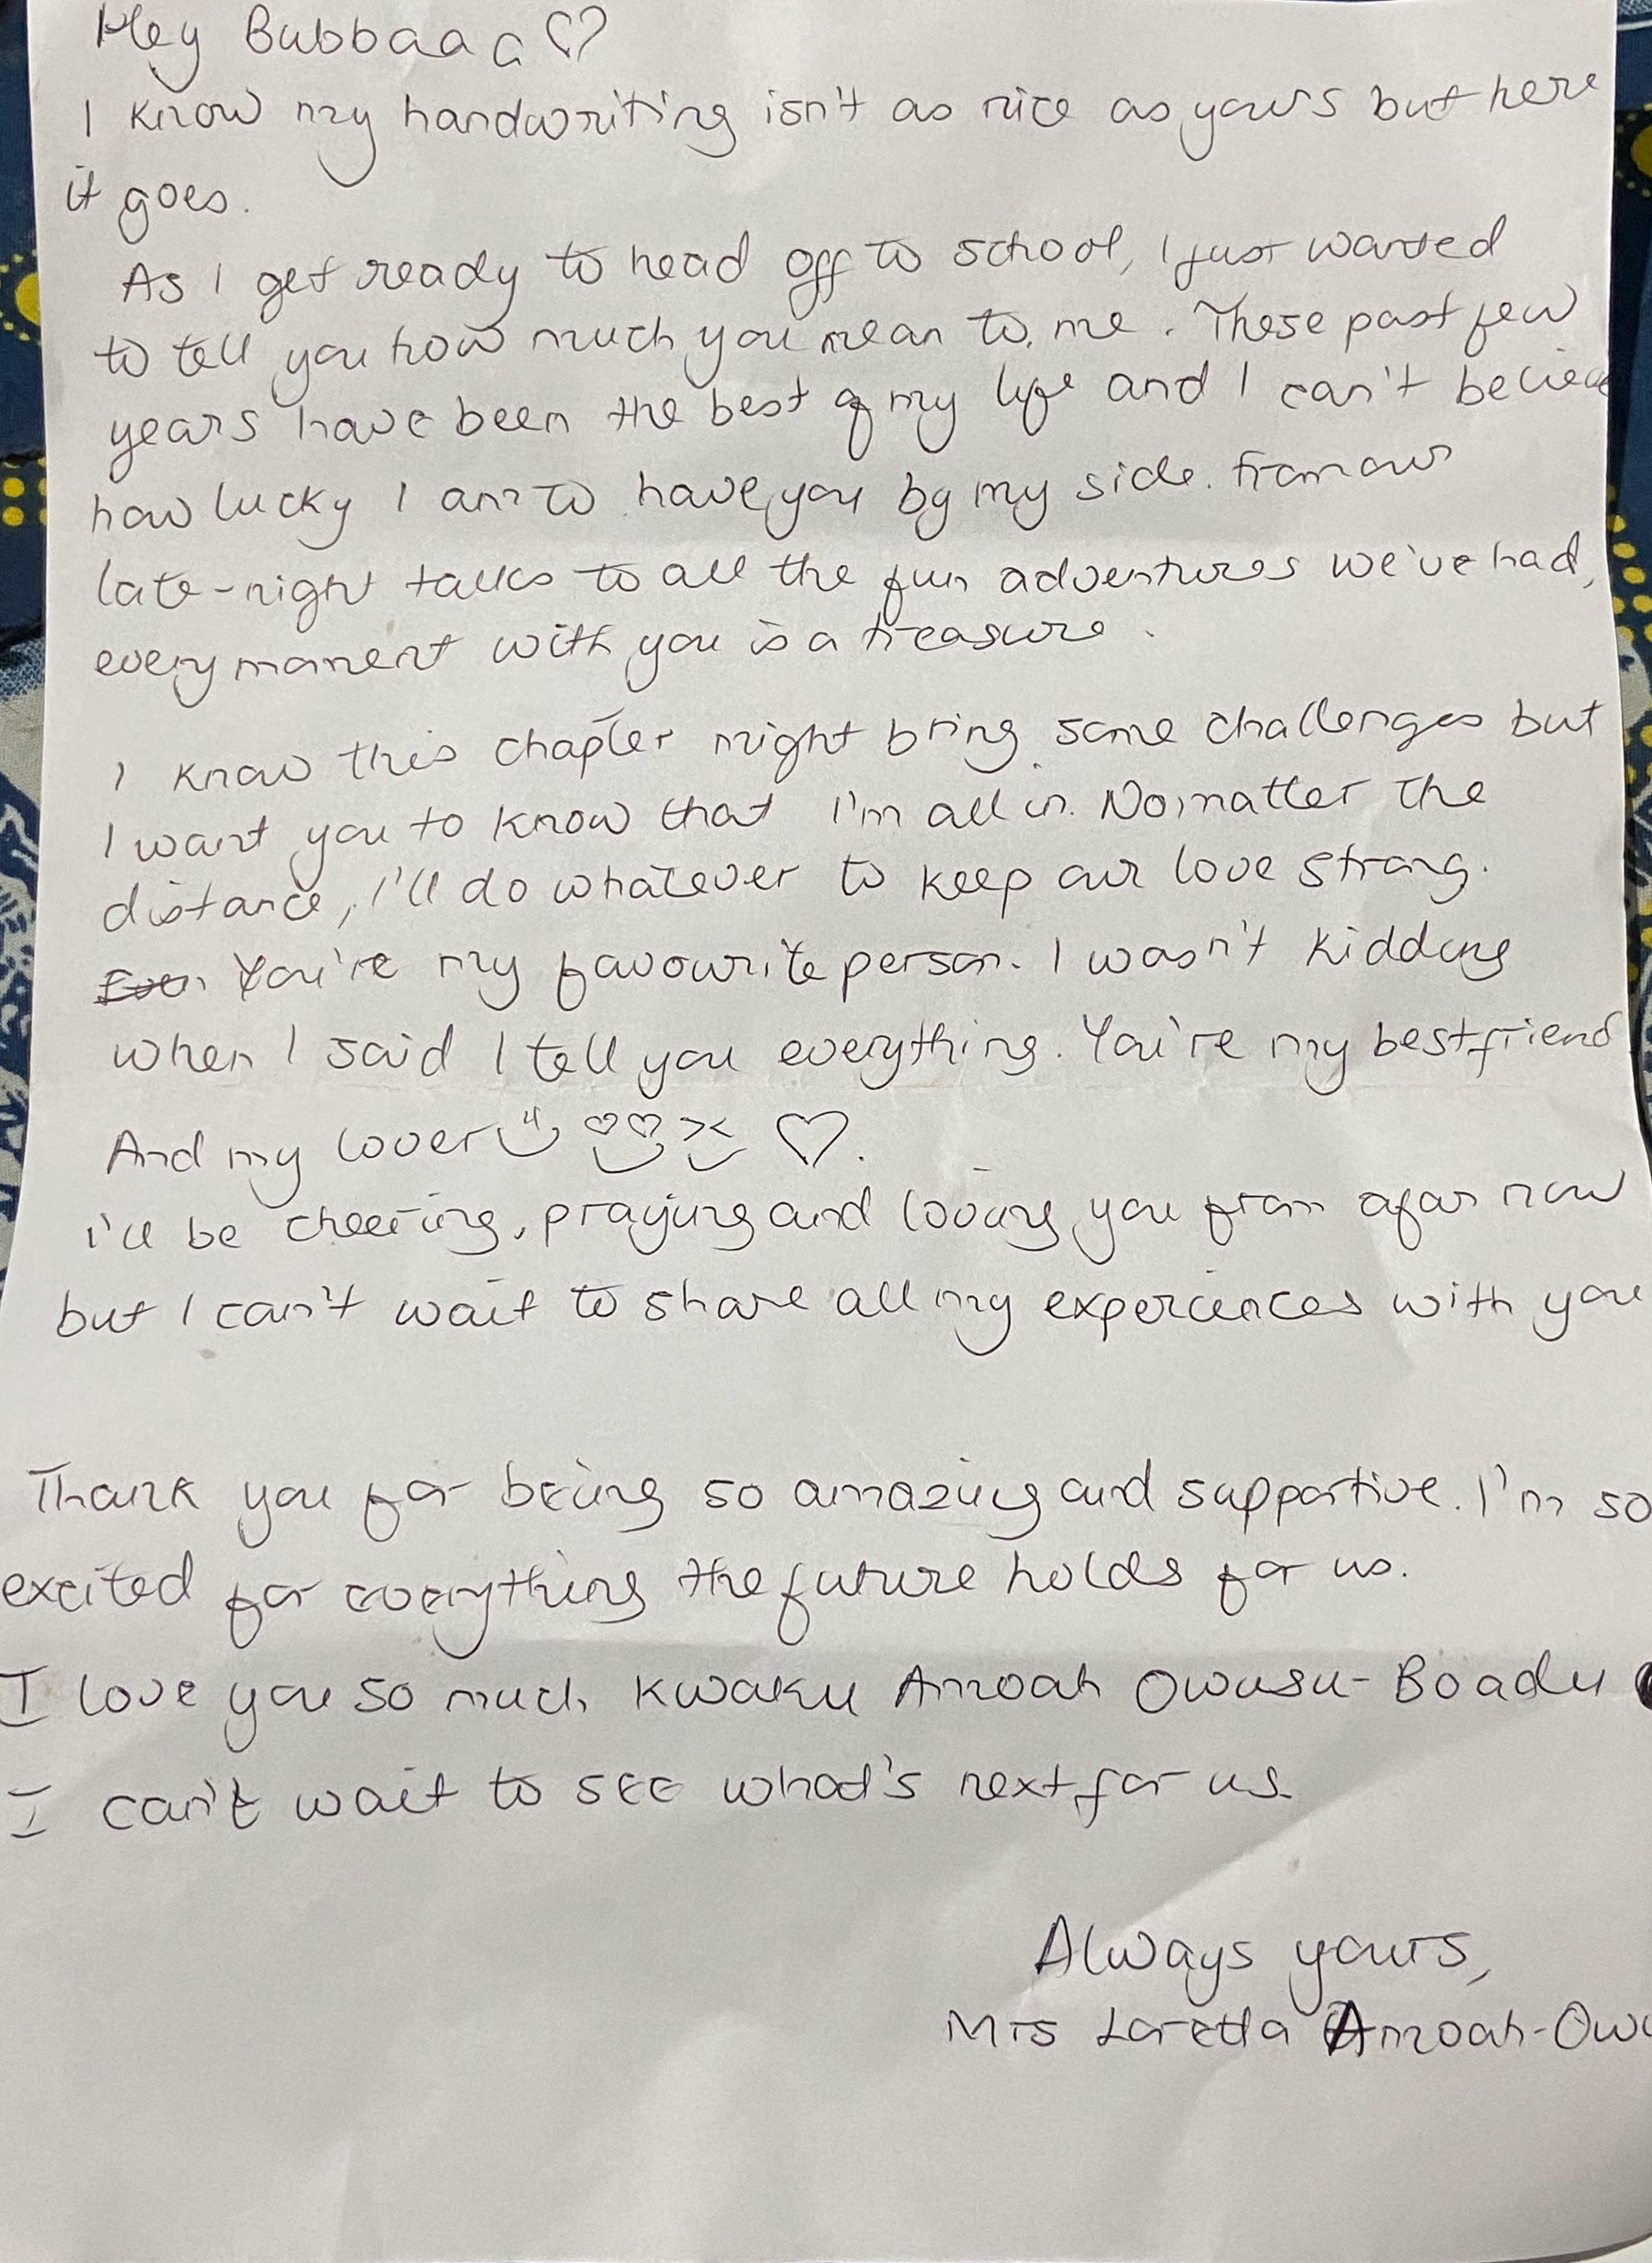 Hey Bubbaaa a ♡
I know my handwriting isn't as nice as yours but here
it goes.
As I get ready to head off to school, I just wanted
to tell you how much you mean to me. These past few
years have been the best of my life and I can't believe
how lucky I am to have you by my side. From our
late-night talks to all the fun adventures we've had,
every moment with you is a treasure.
I know this chapter might bring some challenges but
I want you to know that I'm all in. No matter the
distance, I'll do whatever to keep our love strong.
You're my favourite person. I wasn't kidding
when I said I tell you everything. You're my bestfriend
And my lover ♡.
i'll be cheering, praying and loving you from afar now
but I can't wait to share all my experiences with you
Thank you for being so amazing and supportive. I'm so
excited for everything the future holds for us.
I love you so much Kwaku Amoah Owusu-Boadu
I can't wait to see what's next for us.
Always yours,
Mrs Loretta Amoah-Owu